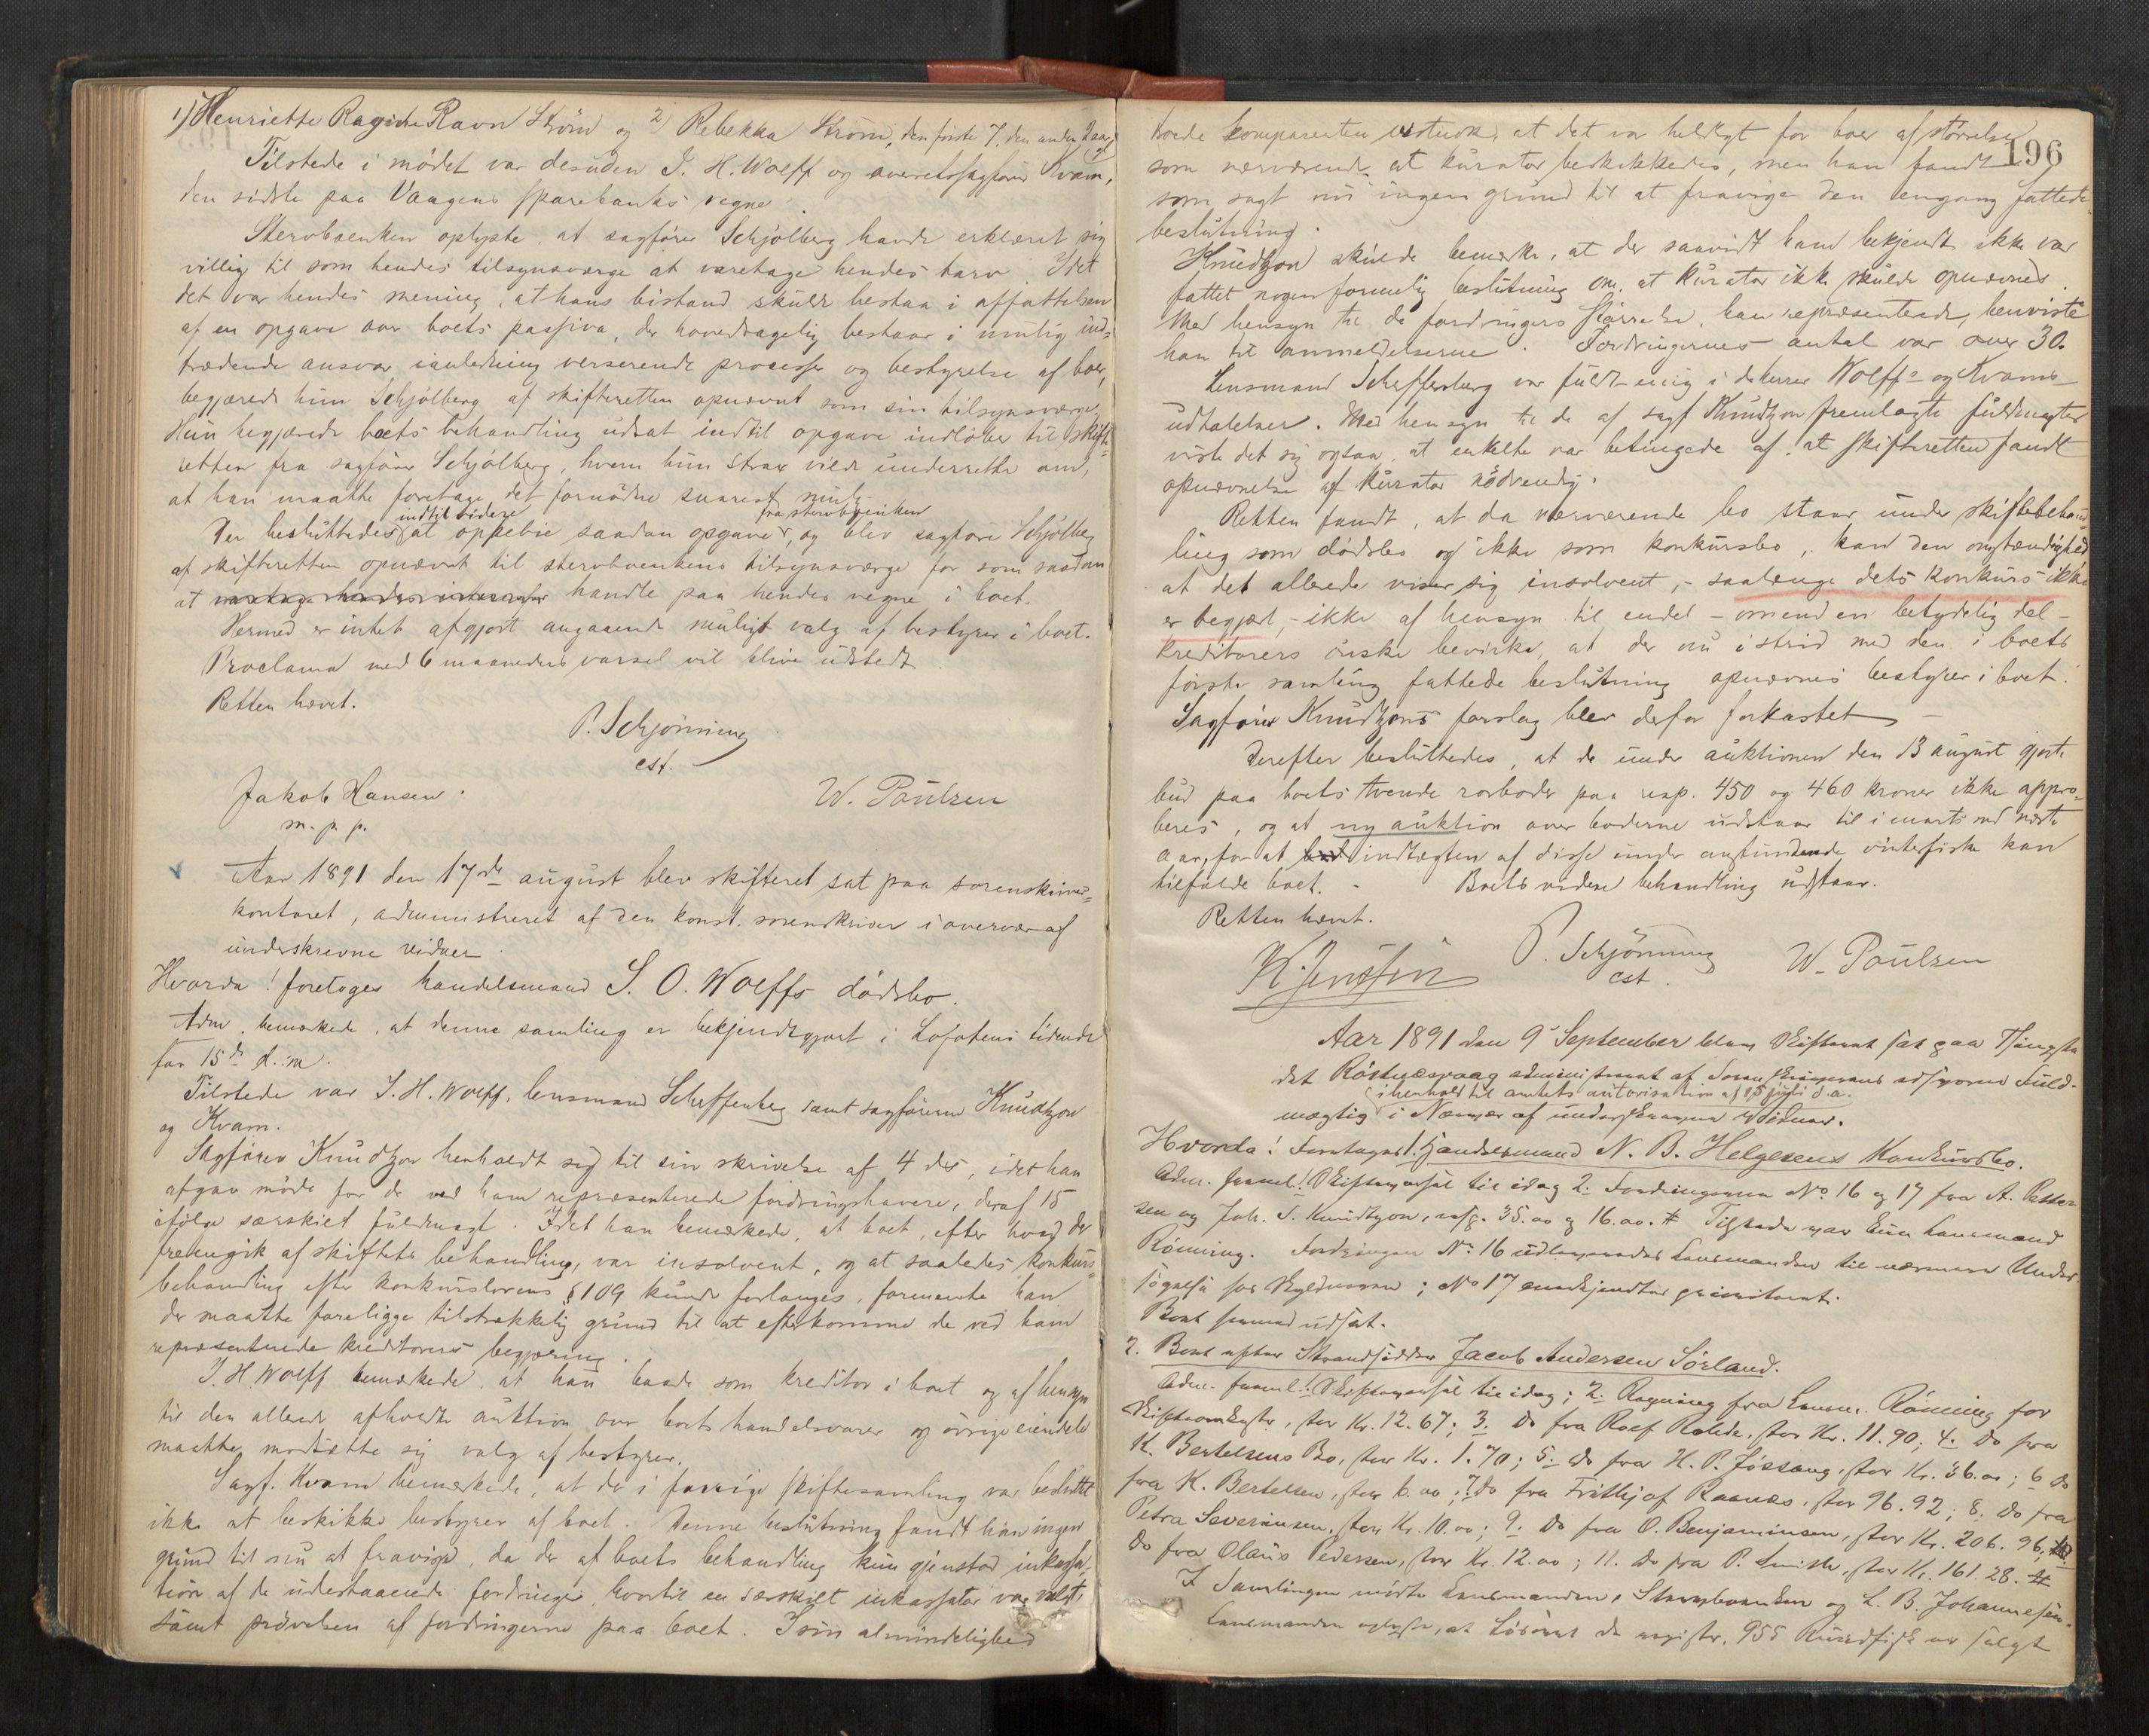 1) Henriette Ragine Ravn Strøm og 2) Rebekka Strøm, den første 7, den anden 2 aar
Tilstede i mødet var desuden I. H. Wolff og overetssagfører Kvam,
den sidste paa Vaagens sparebanks vegne.
Stervboenken oplyste, at sagfører Schjølberg havde erklæret sig
villig til som hendes tilsynsværge at varetage hendes tarv. Idet
det var hendes mening, at hans bistand skulde bestaa i affattelsen
af en opgave over boets passiva, der hovedsagelig bestaar i mulig ind-
trædende ansvar i anledning verserende processer og bestyrelse af boer,
begjærede hun Schjølberg af skifteretten opnævnt som sin tilsynsværge.
Hun begjærede boets behandling udsat indtil opgave indløber til skifte-
retten fra sagfører Schjølberg, hvem hun strax vilde underrette om,
at han maatte foretage det fornødne snarest mulig.
indtil videre fra stervboenken
Der besluttedes at oppebie saadan opgave, og blev sagfører Schjølberg
af skifteretten opnævnt til stervboenkens tilsynsværge for som saadan
at handle paa hendes vegne i boet.
Hermed er intet afgjort angaaende muligt valg af bestyrer i boet.
Proclama med 6 maaneders varsel vil blive udstedt.
Retten hævet.
P. Schjønning
cst.
Jakob Hansen.
m. p. p.
W. Poulsen
Aar 1891 den 17de august blev skifteret sat paa sorenskriver-
kontoret, administreret af den konst. sorenskriver i overvær af
underskrevne vidner
Hvorda! foretoges handelsmand S. O. Wolffs dødsbo.
Adm. bemærkede, at denne samling er bekjendtgjort i Lofotens tidende
for 15de d. m.
Tilstede var I. H. Wolff, lensmand Scheffenberg samt sagførerne Knudtzon
og Kvam.
Sagfører Knudtzon henholdt sig til sin skrivelse af 4 ds, idet han
afgav møde for de ved ham repræsenterede fordringshavere, deraf 15
ifølge særskilt fuldmagt. Idet han bemærkede, at boet, efter hvad der
fremgik af skiftets behandling, var insolvent, og at saaledes konkurs-
behandling efter konkurslovens § 109 kunde forlanges, formente han
der maatte foreligge tilstrækkelig grund til at efterkomme de ved ham
repræsenterede kreditorers begjæring.
I. H. Wolff bemærkede, at han baade som kreditor i boet og af hensyn
til den allerede afholdte auktion over boets handelsvarer og øvrige eiendele
maatte modsætte sig valg af bestyrer.
Sagf. Kvam bemærkede, at der i forrige skiftesamling var besluttet
ikke at beskikke bestyrer af boet. Denne beslutning fandt han ingen
grund til nu at fravige, da der af boets behandling kun gjenstod inkassa-
tion af de udestaaende fordringer, hvortil en særskilt inkassator var valgt,
samt prøvelsen af fordringerne paa boet. I sin almindelighed
196
troede komparenten at det var heldigt for boer af størrelse
som nærværende at kurator beskikkedes, men han fandt
som sagt nu ingen grund til at fravige den engang fattede
beslutning.
Knudtzon skulde bemærke, at der saavidt ham bekjendt ikke var
fattet nogen formelig beslutning om, at kurator ikke skulde opnævnes.
Med hensyn til de fordringers størrelse, han repræsenterede, henviste
han til anmeldelserne. Fordringernes antal var over 30.
Lensmand Scheffenberg var fuldt enig i d'herrer Wolffs og Kvams
udtalelser. Med hensyn til de af sagf Knudtzon fremlagte fuldmagter
viste det sig ogsaa, at enkelte var betingede af, at skifteretten fandt
opnævnelse af kurator nødvendig.
Retten fandt, at da nærværende bo staar under skiftebehand-
ling som dødsbo og ikke som konkursbo, kan den omstændighed
at det allerede viser sig insolvent, - saalenge dets konkurs ikke
er begjært, - ikke af hensyn til endel - omend en betydelig del -
kreditorers ønske bevirke, at der nu i strid med den i boets
første samling fattede beslutning opnævnes bestyrer i boet.
Sagfører Knudtzons forslag blev derfor forkastet
Derefter besluttedes, at de under auktionen den 13 august gjorte
bud paa boets tvende rorboder paa resp. 450 og 460 kroner ikke appro-
beres, og at ny auktion over boderne udstaar til i marts md næste
aar, for at indtægten af disse under anstundende vinterfiske kan
tilfalde boet. - Boets videre behandling udstaar.
Retten hævet.
K. Jenssen
P. Schjønning
cst.
W. Poulsen
Aar 1891 den 9 September blev Skifteret sat paa Thingste-
det Røstnæsvaag administreret af Sorenskriverens edsvorne Fuld-
i henhold til amtets autorisation af 15 juli d. a.
mægtig i Nærvær af underskrevne Vidner.
Hvorda! Foretoges 1. Handelsmand N. B. Helgesens Konkursbo.
Adm. freml. 1. Skiftevarsel til idag 2. Fordringerne No 16 og 17 fra A. Petter-
sen og Joh. S. Knudtzon, resp. 35.00 og 16.00. # Tilstede var kun Lensmand
Rönning. Fordringen No 16 udleveredes Lensmanden til nærmere Under-
søgelse hos Skyldneren; No 17 anerkjendtes prioritet.
Boet hermed udsat.
2. Boet efter Strandsidder Jacob Andersen Sørland.
Adm. freml. 1. Skiftevarsel til idag; 2. Regning fra Lensm. Rönning for
Skifteomkostn., stor Kr. 12.67; 3. Do fra Rolf Rolde, stor Kr. 11.90; 4. Do fra
K. Bertelsens Bo, stor Kr. 1.70; 5. Do fra H. P. Jøssang, stor Kr. 36.00; 6 Do
fra K. Bertelsen, stor 6.00; 7. Do fra Frithjof Raanæs, stor 96.92; 8. Do fra
Petra Severinsen, stor Kr. 10.00; 9. Do fra O. Benjaminsen, stor Kr. 206.96; 10.
Do fra Olaus Pedersen, stor Kr. 12.00; 11. Do fra P. Smith, stor Kr. 161.28. #
I Samlingen mødte Lensmanden, Stervboenken og L. B. Johannesen.
Lensmanden oplyste, at Løsøret de registr. 955 Rundfisk var solgt